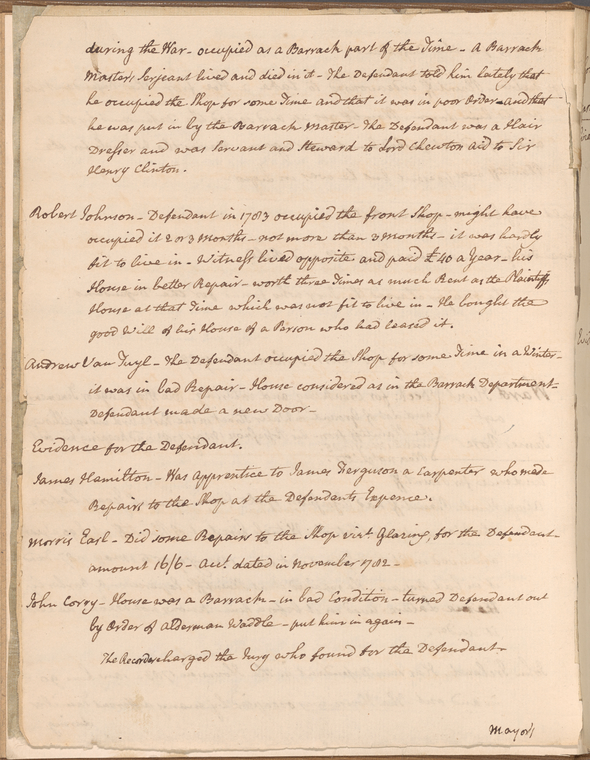 during the War - occupied as a Barrack part of the Time - A Barrack
Masters Serjeant lived and died in it - The Defendant told him lately that
he occupied the Shop for some Time and that it was in poor Order - and that
he was put in by the Barrack Master - The Defendant was a Hair
Dresser and was Servant and Steward to Lord Chewton aid to Sir
Henry Clinton.
Robert Johnson - Defendant in 1783 occupied the front Shop - might have
occupied it 2 or 3 Months - not more than 3 Months - it was hardly
fit to live in - Witness lived opposite and paid £40 a Year - his
House in better Repair - worth three Times as much Rent as the Plaintiffs
House at that Time which was not fit to live in - He bought the
good Will of his House of a Person who had leased it.
Andrew Van Tuyl - The Defendant occupied the Shop for some Time in a Winter -
it was in bad Repair - House considered as in the Barrack Department -
Defendant made a new Door -
Evidence for the Defendant.
James Hamilton - Was Apprentice to James Ferguson a Carpenter who made
Repairs to the Shop at the Defendants Expence.
Morris Earl - Did some Repairs to the Shop vizt. Glazing, for the Defendant -
amount 16/6 - Acct. dated in November 1782 -
John Corry - House was a Barrack - in bad Condition - turned Defendant out
by Order of Alderman Waddle - put him in again -
The Recorder charged the Jury who found for the Defendant -
Mayor's